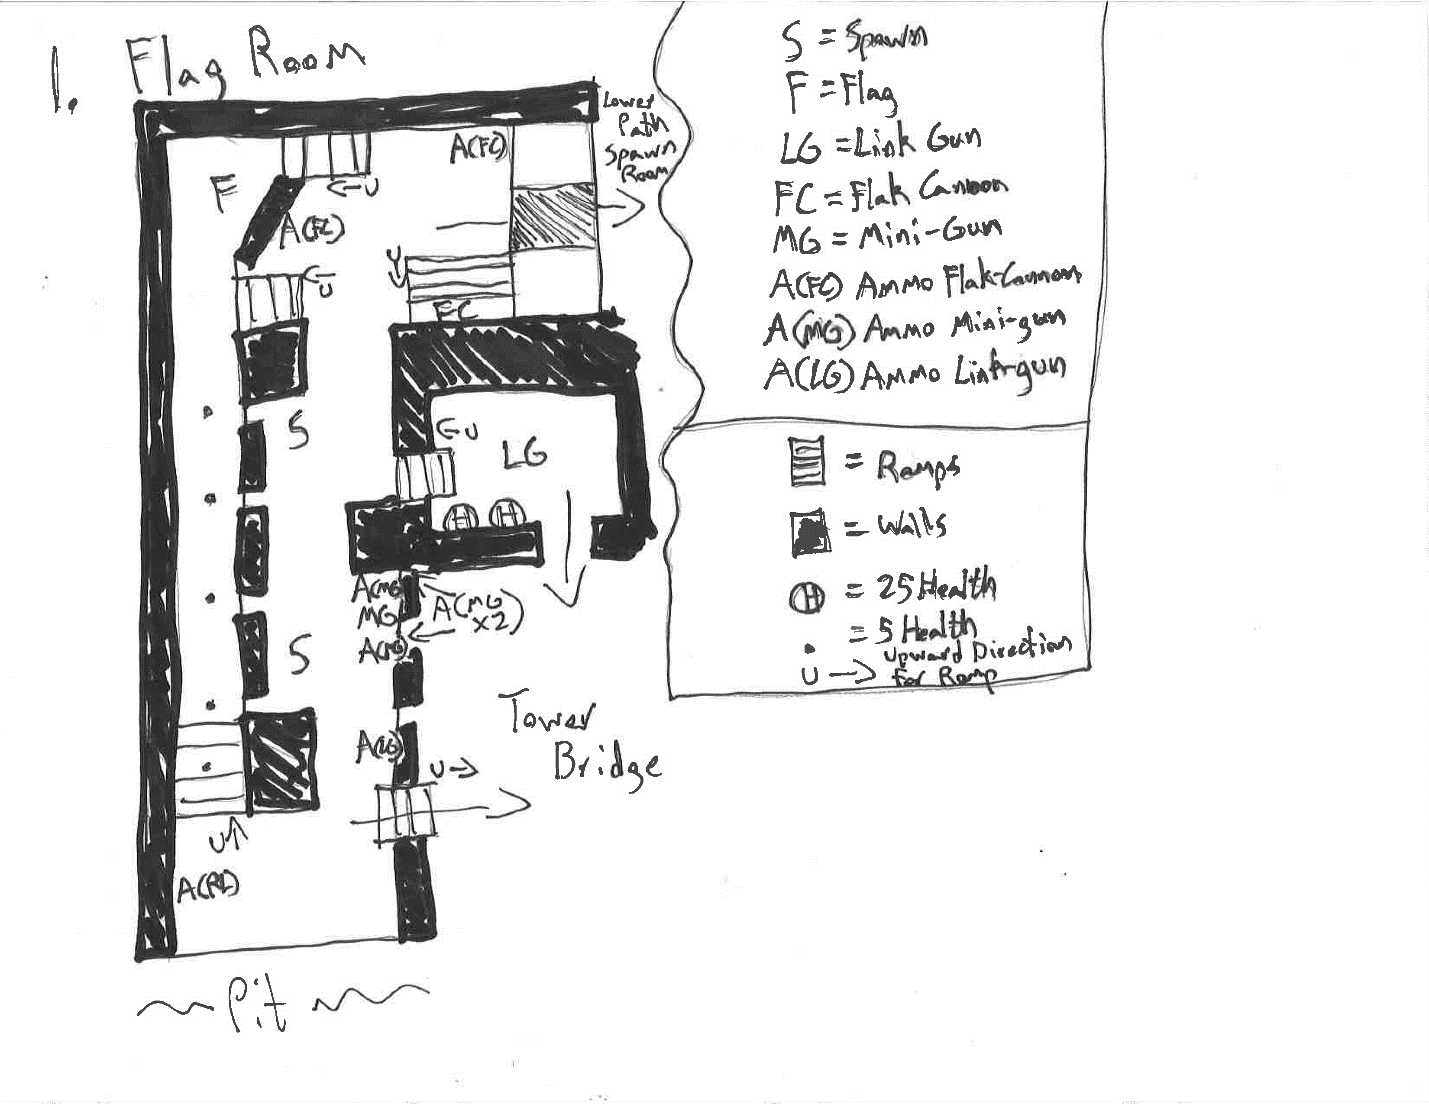 1. Flag Room
Lower
Path
Spawn
Room
A(FC)
F
←U
A(FC)
←U
FC
S
←U
LG
H H
A(MG)
MG
A(MG
x2)
S
Tower
Bridge
A(LG)
U→
U↑
~ Pit ~
S = Spawn
F = Flag
LG = Link Gun
FC = Flak Cannon
MG = Mini-Gun
A(FC) Ammo Flak-Cannon
A(MG) Ammo Mini-gun
A(LG) Ammo Link-gun
= Ramps
= Walls
H = 25 Health
• = 5 Health
U → Upward Direction
For Ramp